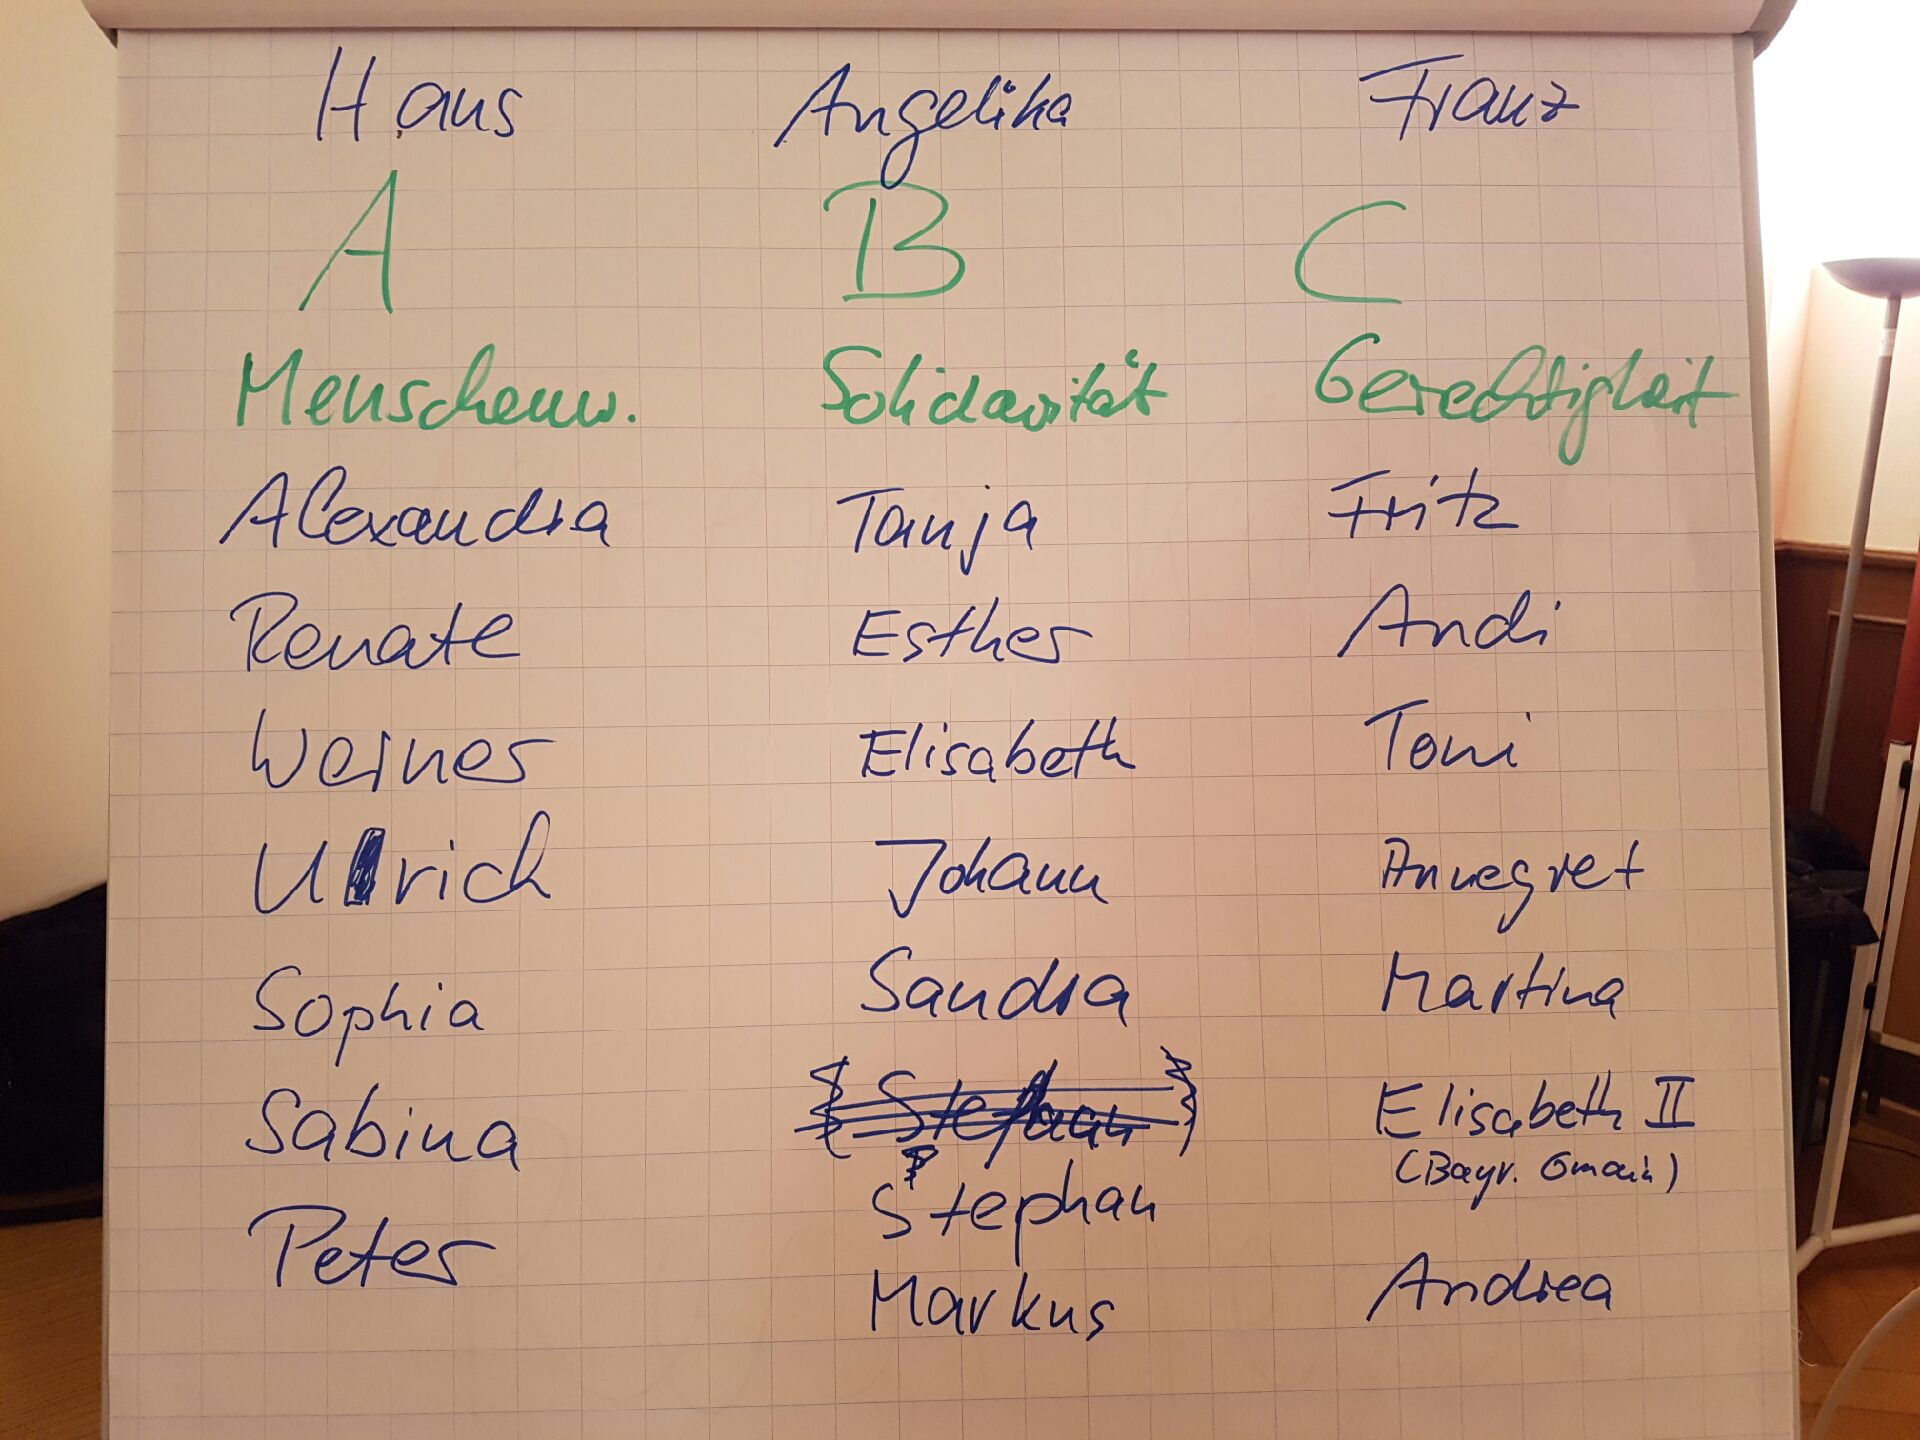 Hans Angelika Franz
A B C
Menschenw. Solidarität Gerechtigkeit
Alexandra Tanja Fritz
Renate Esther Andi
Werner Elisabeth Toni
Ulrich Johann Annegret
Sophia Sandra Martina
Sabina Stephan Elisabeth II
(Bayr. Gmain)
Stephan
Peter Markus Andrea